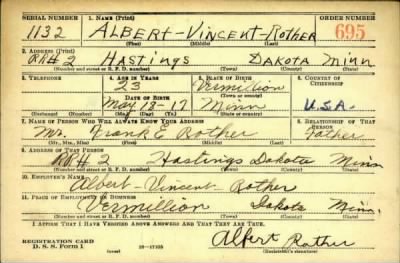 SERIAL NUMBER 1. NAME (Print) ORDER NUMBER
1132 ALBERT-VINCENT-ROTHER 695
(First) (Middle) (Last)
2. ADDRESS (Print)
RR#2 HASTINGS DAKOTA MINN
(Number and street or R. F. D. number) (Town) (County) (State)
3. TELEPHONE 4. AGE IN YEARS 5. PLACE OF BIRTH 6. COUNTRY OF CITIZENSHIP
23 Vermillion
DATE OF BIRTH (Town or county)
May 18-17 Minn U.S.A.
(Exchange) (Number) (Mo.) (Day) (Yr.) (State or country)
7. NAME OF PERSON WHO WILL ALWAYS KNOW YOUR ADDRESS 8. RELATIONSHIP OF THAT PERSON
Mr. Frank E Rother Father
(Mr., Mrs., Miss) (First) (Middle) (Last)
9. ADDRESS OF THAT PERSON
RR#2 Hastings Dakota Minn
(Number and street or R. F. D. number) (Town) (County) (State)
10. EMPLOYER'S NAME
Albert-Vincent-Rother
11. PLACE OF EMPLOYMENT OR BUSINESS
Vermillion Dakota Minn.
(Number and street or R. F. D. number) (Town) (County) (State)
I AFFIRM THAT I HAVE VERIFIED ABOVE ANSWERS AND THAT THEY ARE TRUE.
REGISTRATION CARD
D. S. S. Form 1 16-17105 Albert Rother
(Registrant's signature)